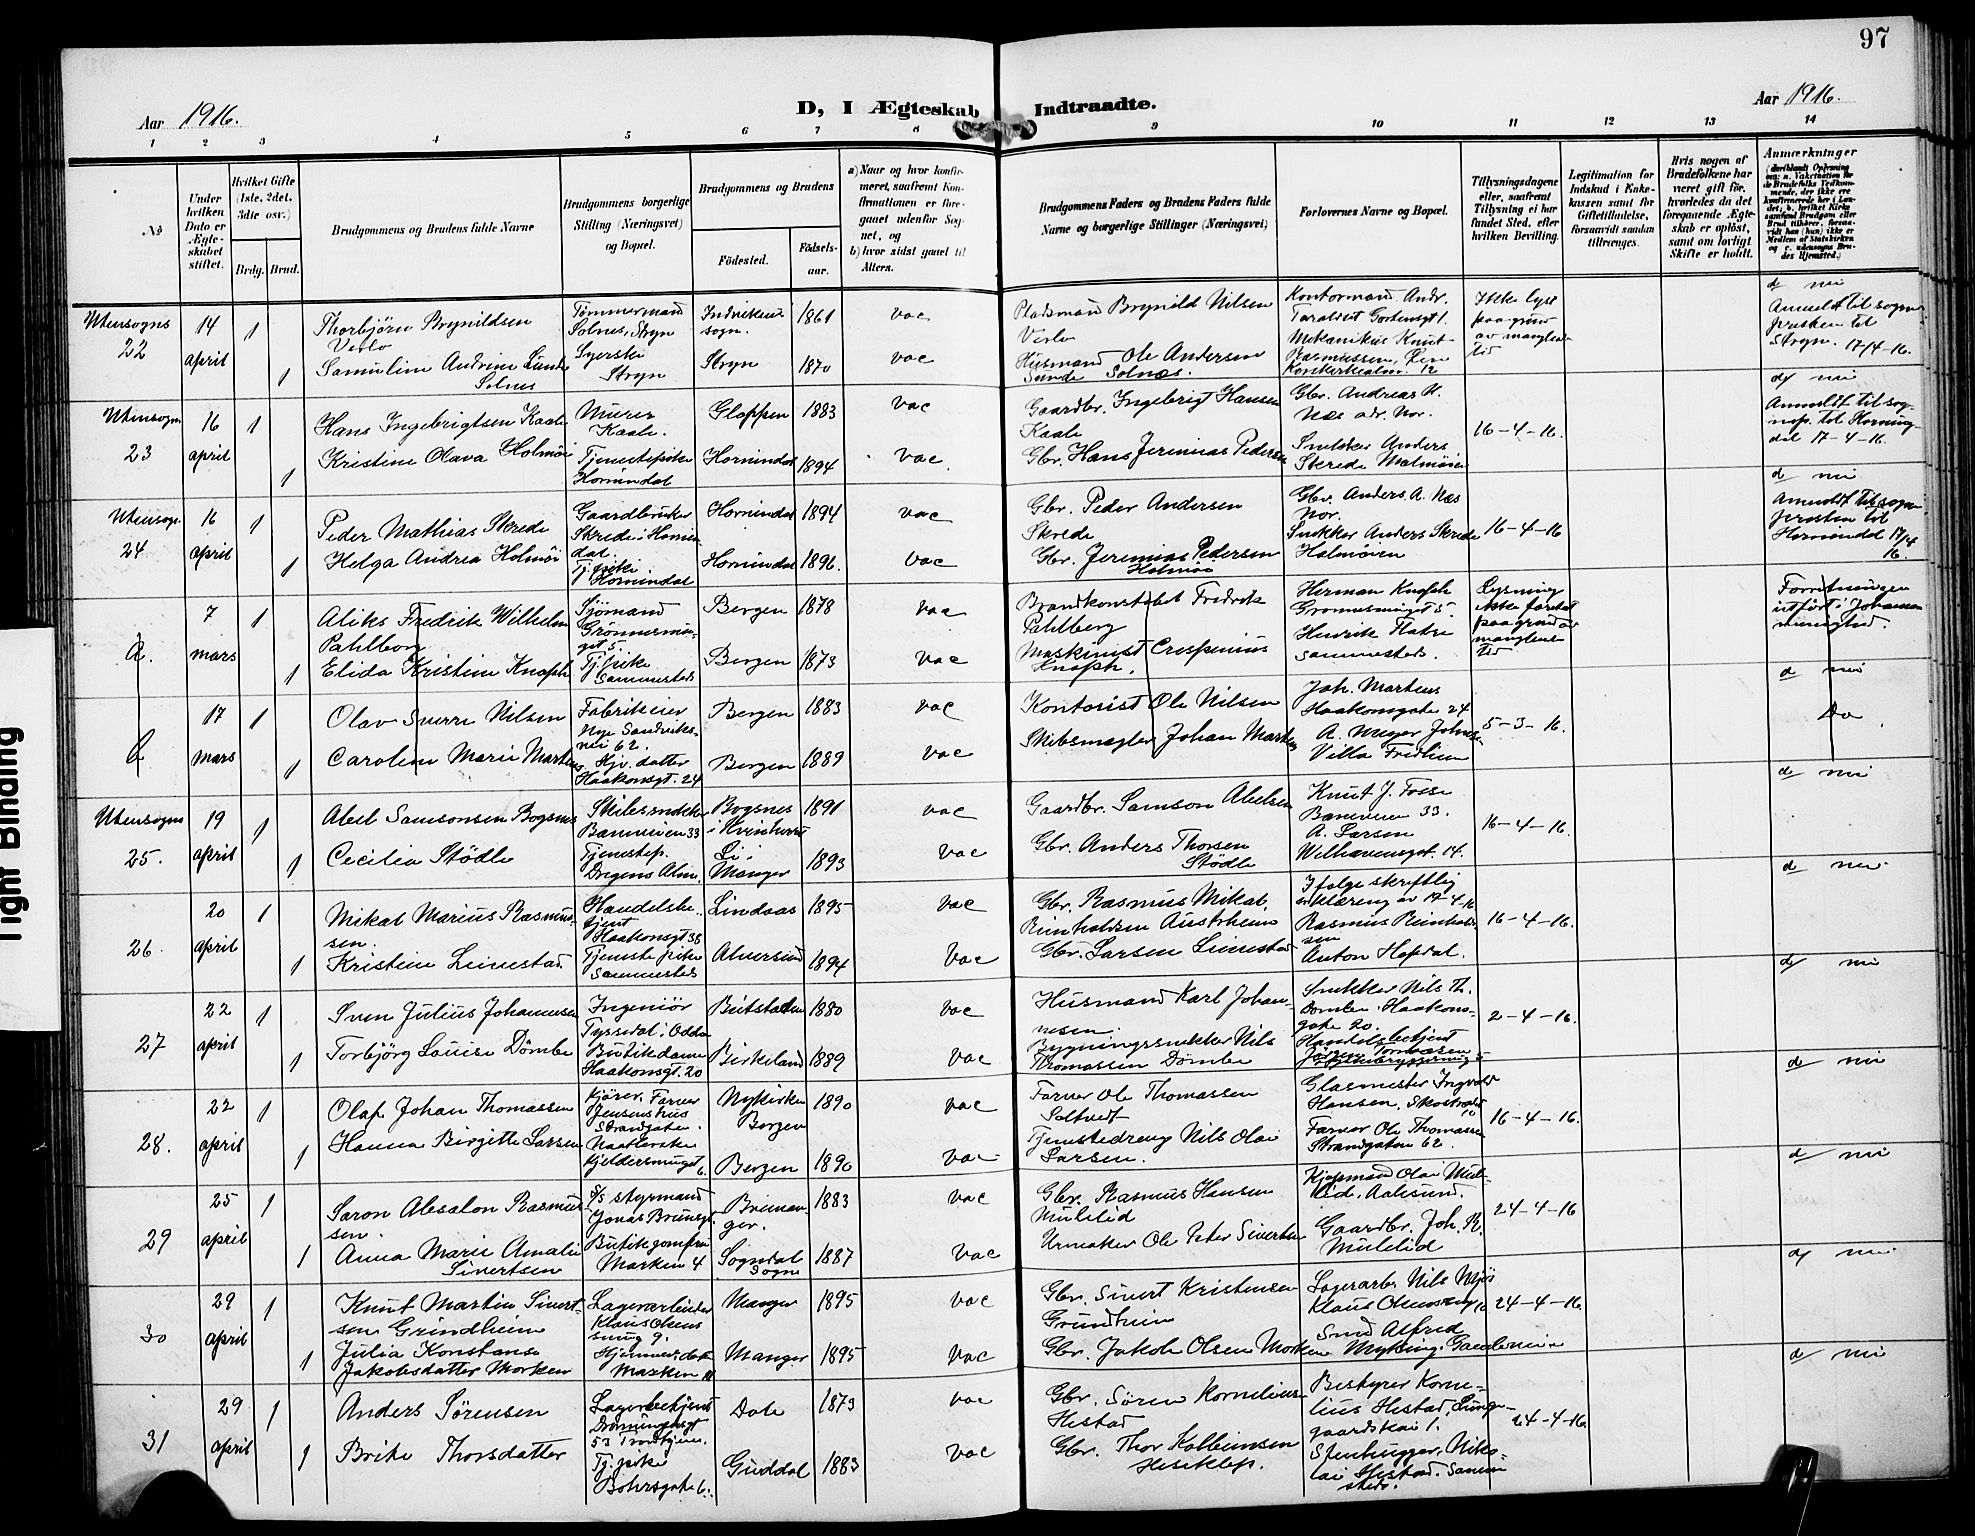 97
Aar 1916.
D, I Ægteskab Indtraadte.
Aar 1916.
1 2 3 4 5 6 7 8 9 10 11 12 13 14
No
Under hvilken Dato er Ægteskabet stiftet.
Hvilket Gifte (1ste, 2det, 3die osv.)
Brdg. Brud.
Brudgommens og Brudens fulde Navne
Brudgommens borgerlige Stilling (Næringsvei) og Bopæl.
Brudgommens og Brudens
Fødested.
Fødsels-aar.
a) Naar og hvor konfirmeret, saafremt Konfirmationen er foregaaet udenfor Sognet, og
b) hvor sidst gaaet til Alters.
Brudgommens Faders og Brudens Faders fulde Navne og borgerlige Stillinger (Næringsvei)
Forlovernes Navne og Bopæl.
Tillysningsdagene eller, saafremt Tillysning ei har fundet Sted, efter hvilken Bevilling.
Legitimation for Indskud i Enkekassen samt for Giftetilladelse, forsaavidt saadan tiltrænges.
Hvis nogen af Brudefolkene har været gift før, hvorledes da det foregaaende Ægteskab er opløst, samt om lovligt Skifte er holdt.
Anmærkninger
Utensogns 22
14 april
1
Thorbjörn Brynildsen
Verlo
Tømmermand
Solnes, Stryn
sogn.
1861
vac
Pladsmand Brynild Nilsen
Verlo
Kontormand Andr.
Ikke lyst paa grund av manglende tid
d nei
Anmeldt til sogne-
Stryn. 17/4-16.
1
Samuline Andrine Lunde
Solnes
Syerske
Stryn
Stryn
1870
vac
Husmand Ole Andersen
Solnæs.
Mekanikus Knut
Rasmussen,
12
Utensogn 23
16 april
1
Hans Ingebrigtsen Kaale
Murer
Kaale.
Gloppen
1883
vac
Gaardbr. Ingebrigt Hansen
Kaale
Gbr. Andreas A.
Næs adr. Nor.
16-4-16.
d nei
Anmeldt til sog-
nep. til Hornin-
dal 17-4-16.
1
Kristine Olava Holmöi
Tjenestepike
Hornindal
Hornindal
1894
vac
Gbr. Hans Jeremias Pedersen
Snekker Anders
Skrede Holmöien
Utensogn 24
16 april
1
Peder Mathias Skrede
Gaardbruker
Skrede i Hornin-
dal.
Hornindal
1894
vac
Gbr. Peder Andersen
Skrede
Gbr. Anders A. Næs
Nor.
16-4-16
d nei
Anmeldt til sogne-
Hornindal 17/4
16.
1
Helga Andrea Holmöi
Tj. pike.
Hornindal
Hornindal
1896.
vac
Gbr. Jeremias Pedersen
Holmöi
Snekker Anders Skrede
Holmöien
a.
7 mars
1
Aliks Fredrik Wilhelm
Pahlberg
Sjömand
Bergen
1878
vac
Brandkonstabel Fredrik
Pahlberg
Herman Knoph
Lysning
ikke foretat
paa grund av
manglende
tid
Forretningen
utført i Johannes
menighed.
1
Elida Kristine Knoph
Tj. pike
sammesteds
Bergen
1873
vac
Maskinist Crespinius
Knoph.
Henrik
sammesteds.
17 mars
1
Olav Sverre Nilsen
Fabrikeier
Nye Sandviks-
vei 62.
Bergen
1883
vac
Kontorist Ole Nilsen
Joh. Martens
Haakonsgate 24
5-3-16.
d nei
Do
1
Caroline Marie Martens
Hjv. datter
Haakonsgt. 24
Bergen
1889
vac
Skibsmægler Johan Martens
A. Meyer Johnsen
Villa Fredheim
Utensogns 25.
19 april
1
Abel Samsonsen Bogsnes
Bogsnes
1891
vac
Gaardbr. Samson Abelsen
Knut J. Fosse
33.
16-4-16.
d nei
1
Cecilia Stödle
Tjenestep.
Dregens Alm.
Li i
Manger
1893
vac
Gbr. Anders Thorsen
Stödle
A. Larsen
Welhavensgt. 14.
26.
20 april
1
Mikal Marius Rasmus-
sen.
Handelsbe-
tjent
Haakonsgt 38
Lindaas
1895
vac
Gbr. Rasmus Mikal
Reinholdsen Austrheim
Ifølge skriftlig
erklæring av 17-4-16
Rasmus Reinhold-
sen
16-4-16.
d nei
1
Kristine Leirestad
Tjeneste pike
sammesteds
Alversund
1894
vac
Gbr. Larsen
Anton Hopdal.
27
22 april
1
Sven Julius Johannesen
Ingeniør
Tyssedal i Odda
Beitstaden
1880
vac
Husmand Karl Johan-
nesen.
Snekker Nils Th.
Dömbe. Haakons-
gate 20.
2-4-16.
d nei
1
Torbjörg Louise Dömbe
Butikdame
Haakonsgt. 20
Birkeland
1889
vac
Bygningssnekker Nils
Thomassen Dömbe
Handelsbetjent
28.
22 april
1
Olaf Johan Thomassen
Kjører. Farver
Jensens hus
Strandgaten.
Nykirken
Bergen
1890
vac
Farver Ole Thomassen
Saltvedt
Glasmester Ingvald
Hansen, Skostrædet
10
16-4-16.
d nei
1
Hanna Birgitte Larsen
Kjeldersmuget 6.
Bergen
1890
vac
Tjenestedreng Nils Olai
Larsen.
Farver Ole Thomassen
Strandgaten 62.
29
25 april
1
Saron Absalon Rasmus-
sen.
S/S styrmand
Jonas Brunsgt.
Breman-
ger.
1883
vac
Gbr. Rasmus Hansen
Mulelid
Kjøpmand Olai Mule-
lid. Aalesund.
24-4-16
d nei
1
Anna Marie Amalie
Sivertsen
Butikjomfru
Marken 4
Sogndal
Sogn
1887
vac
Urmaker Ole Peter Sivertsen
Gaardbr. Joh. R.
Mulelid
30
29 april
1
Knut Martin Sivert-
sen Grindheim
Lagerarbeider
Klaus Okens
smug 9.
Manger
1895
vac
Gbr. Sivert Kristensen
Grindheim
Lagerarb. Nils Mjøs
Klaus Okensmug 10
24-4-16.
d nei
1
Julia Konstanse
Jakobsdatter Morken
Hjemmev. datt
Marken 11
Manger
1895
vac
Gbr. Jakob Olsen Morken
Smed Alfred
Myking
31
29 april
1
Anders Sörensen
Lagerbetjent
Dronningensgt
53 Trondhjem.
Dale
1873
vac
Gbr. Sören Kornelius
Hestad
Bestyrer Korne-
lius Hestad, Lunge-
gaardskai 1.
24-4-16.
d nei
1
Brite Thorsdatter
Tj. pike
Bohrsgate 6.
Guddal
1883
vac
Gbr. Thor Kolbeinsen
Stenhugger. Niko-
lai Hestad. Samme-
steds.
Tight Binding